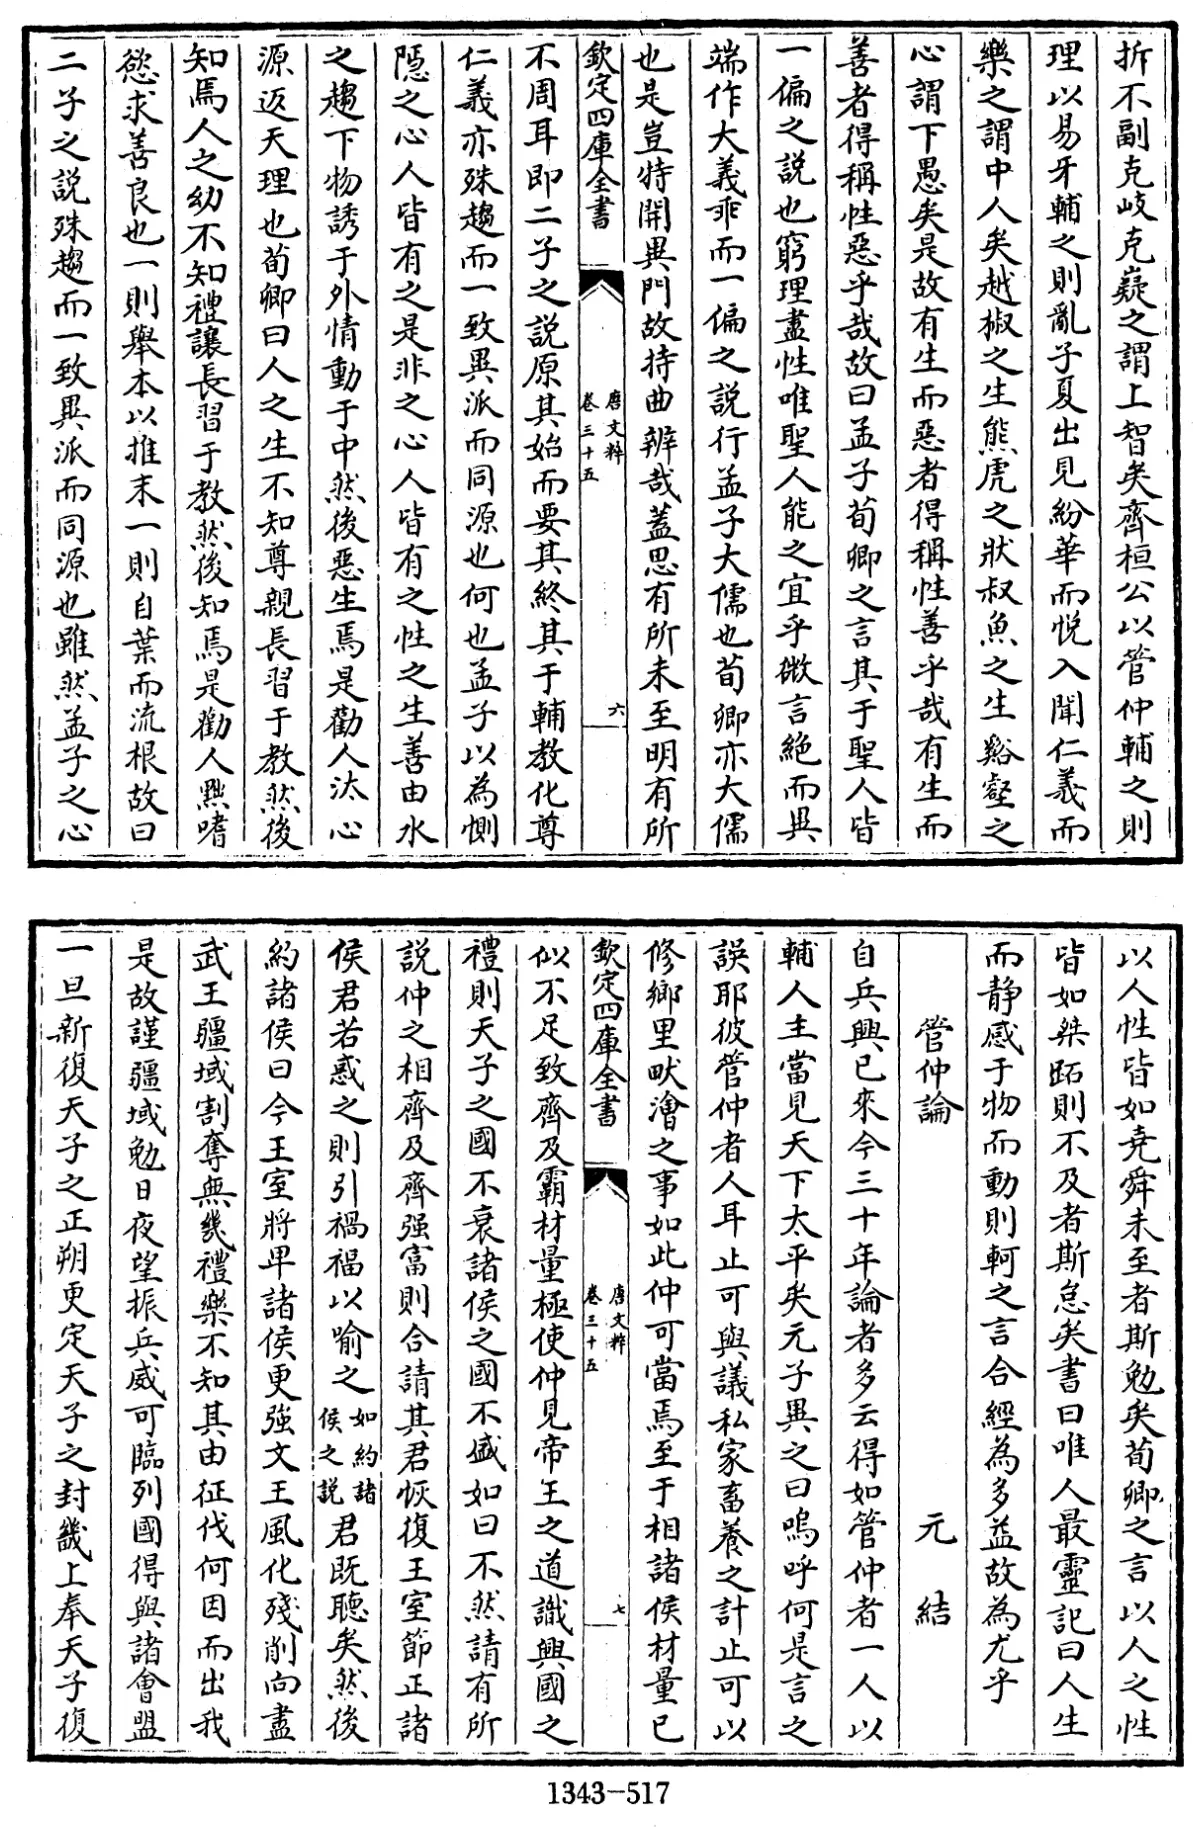 拆不副克岐克嶷之謂上智矣齊桓公以管仲輔之則
理以易牙輔之則亂子夏出見紛華而悦入聞仁義而
樂之謂中人矣越椒之生熊虎之狀叔魚之生谿壑之
心謂下愚矣是故有生而惡者得稱性善乎哉有生而
善者得稱性惡乎哉故曰孟子荀卿之言其于聖人皆
一偏之説也窮理盡性唯聖人能之宜乎微言絶而異
端作大義乖而一偏之説行孟子大儒也荀卿亦大儒
也是豈特開異門故持曲辨哉蓋思有所未至明有所
欽定四庫全書
唐文粹
卷三十五
六
不周耳即二子之説原其始而要其終其于輔教化尊
仁義亦殊趨而一致異派而同源也何也孟子以為惻
隠之心人皆有之是非之心人皆有之性之生善由水
之趨下物誘于外情動于中然後惡生焉是勸人汰心
源返天理也荀卿曰人之生不知尊親長習于教然後
知焉人之幼不知禮讓長習于教然後知焉是勸人黜嗜
慾求善良也一則舉本以推末一則自葉而流根故曰
二子之説殊趨而一致異派而同源也雖然孟子之心
以人性皆如堯舜未至者斯勉矣荀卿之言以人之性
皆如桀跖則不及者斯怠矣書曰唯人最靈記曰人生
而静感于物而動則軻之言合經為多益故為尤乎
管仲論
元結
自兵興已來今三十年論者多云得如管仲者一人以
輔人主當見天下太平矣元子異之曰嗚呼何是言之
誤耶彼管仲者人耳止可與議私家畜養之計止可以
修鄉里畎澮之事如此仲可當焉至于相諸侯材量已
欽定四庫全書
唐文粹
卷三十五
七
似不足致齊及霸材量極使仲見帝王之道識興國之
禮則天子之國不衰諸侯之國不盛如曰不然請有所
説仲之相齊及齊强富則合請其君恢復王室節正諸
侯君若惑之則引禍福以喻之如約諸侯之説君既聽矣然後
約諸侯曰今王室將卑諸侯更強文王風化殘削向盡
武王疆域割奪無幾禮樂不知其由征伐何因而出我
是故謹疆域勉日夜望振兵威可臨列國得與諸會盟
一旦新復天子之正朔更定天子之封畿上奉天子復
1343-517